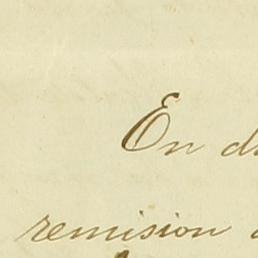 En
remision